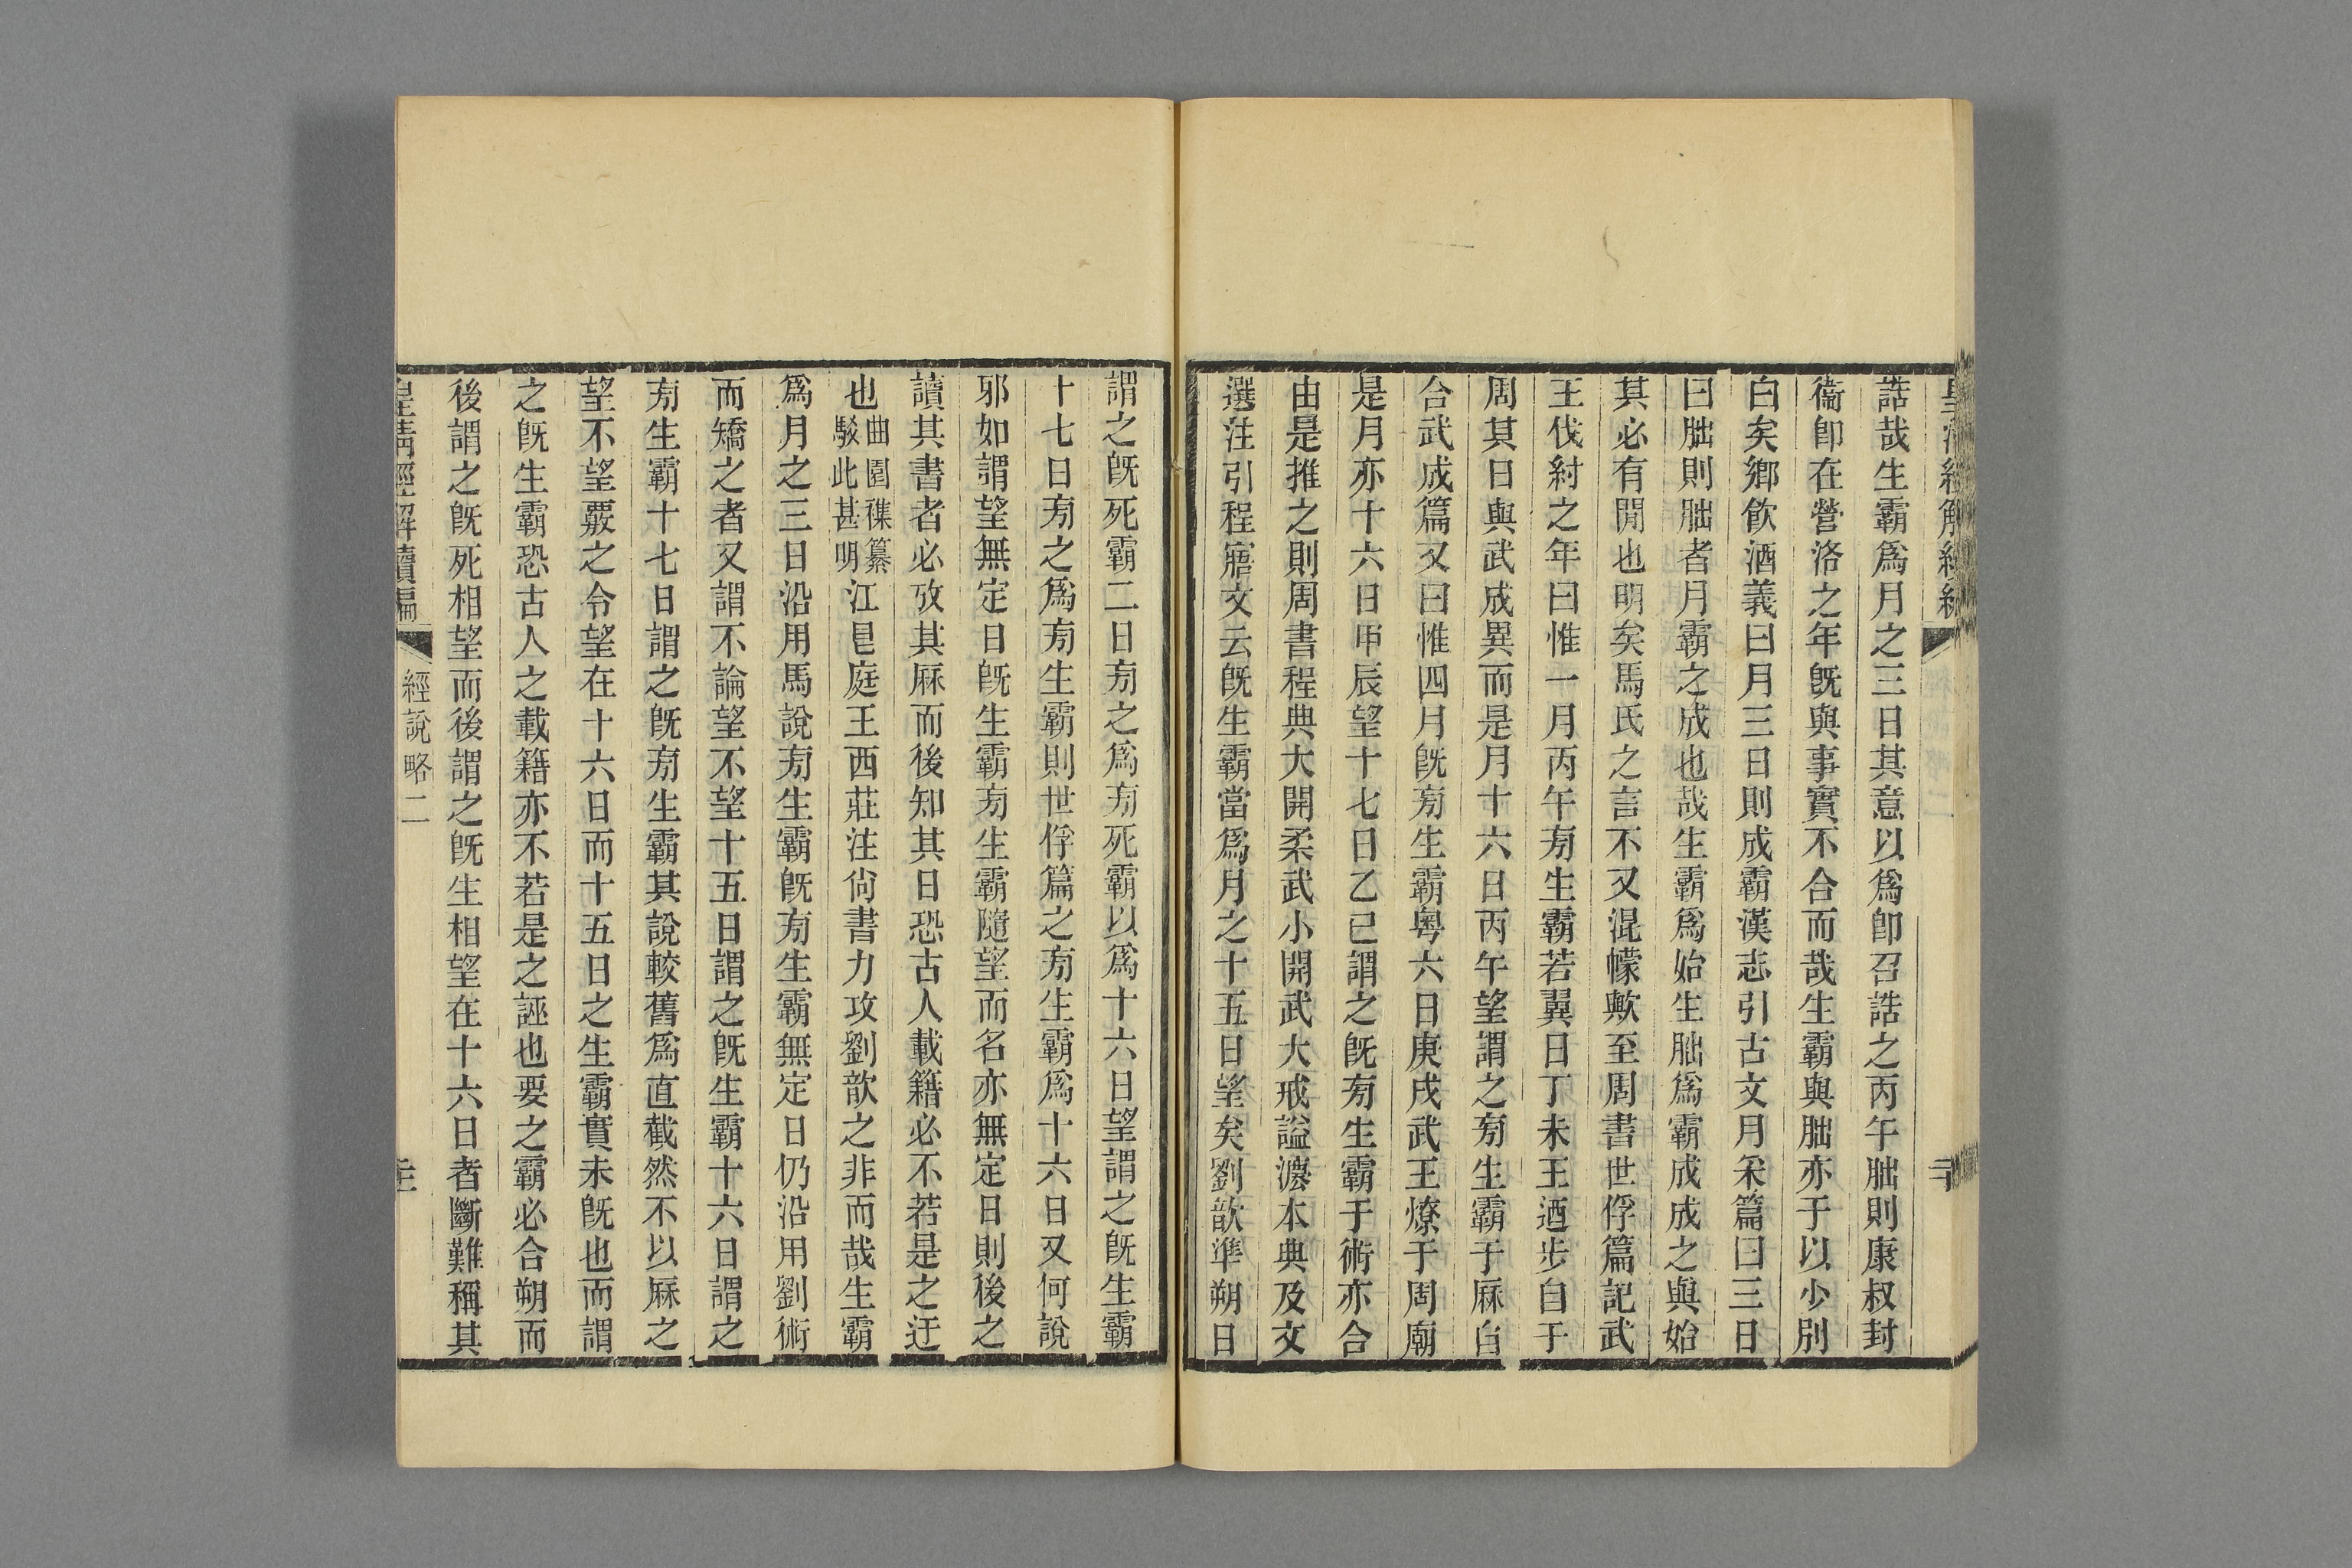 誥哉生霸爲月之三日其意以爲卽召誥之丙午朏則康叔封
衞卽在營洛之年旣與事實不合而哉生霸與朏亦于以少別
白矣鄉飮酒義曰月三日則成霸漢志引古文月采篇曰三日
曰朏則朏者月霸之成也哉生霸爲始生朏爲霸成成之與始
其必有閒也明矣馬氏之言不又混㠓歟至周書世俘篇記武
王伐紂之年曰惟一月丙午㫄生霸若翼日丁未王迺步自于
周其日與武成異而是月十六日丙午望謂之㫄生霸于厤自
合武成篇又曰惟四月旣㫄生霸粵六日庚戌武王燎于周廟
是月亦十六日甲辰望十七日乙巳謂之旣㫄生霸于術亦合
由是推之則周書程典大開柔武小開武大戒謚灋本典及文
選注引程寤文云旣生霸當爲月之十五日望矣劉歆準朔日
謂之旣死霸二日㫄之爲㫄死霸以爲十六日望謂之旣生霸
十七日㫄之爲㫄生霸則世俘篇之㫄生霸爲十六日又何說
邪如謂望無定日旣生霸㫄生霸隨望而名亦無定日則後之
讀其書者必攷其厤而後知其日恐古人載籍必不若是之迂
也曲園襍纂駁此甚明江艮庭王西莊注尙書力攻劉歆之非而哉生霸
爲月之三日沿用馬說㫄生霸旣㫄生霸無定日仍沿用劉術
而矯之者又謂不論望不望十五日謂之旣生霸十六日謂之
㫄生霸十七日謂之旣㫄生霸其說較舊爲直截然不以厤之
望不望覈之令望在十六日而十五日之生霸實未旣也而謂
之旣生霸恐古人之載籍亦不若是之誣也要之霸必合朔而
後謂之旣死相望而後謂之旣生相望在十六日者斷難稱其
皇淸經解續編
經說略二